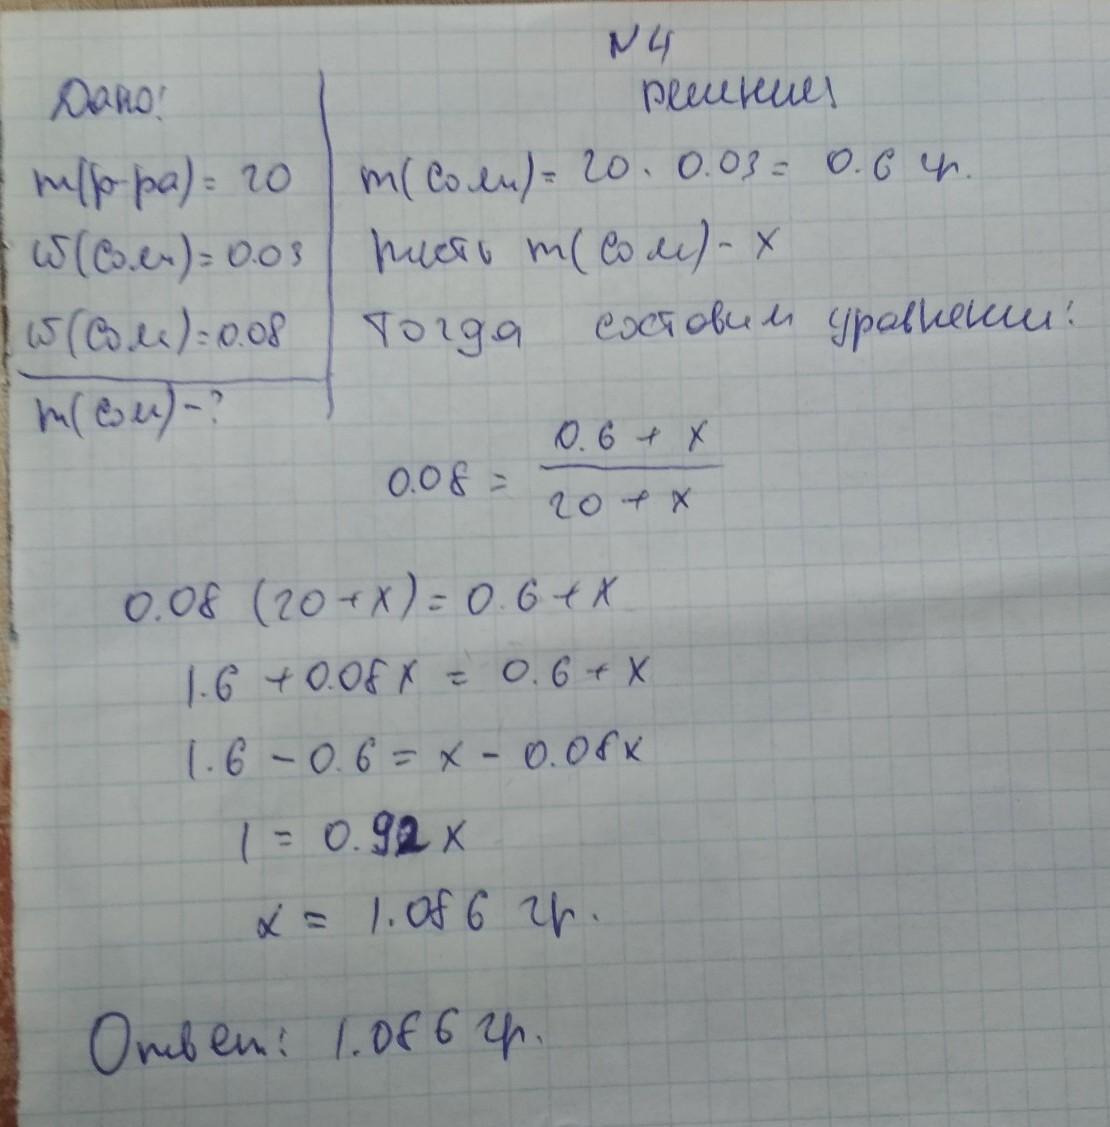 N4
Дано:
решение
m(р-ра) = 20
m(соли) = 20 · 0.03 = 0.6 гр.
ω(соли) = 0.03
пусть m(соли) - x
ω(соли) = 0.08
Тогда составим уравнение:
m(соли) - ?
0.08 = \frac{0.6 + x}{20 + x}
0.08 (20 + x) = 0.6 + x
1.6 + 0.08x = 0.6 + x
1.6 - 0.6 = x - 0.08x
1 = 0.92 x
x = 1.086 гр.
Ответ: 1.086 гр.